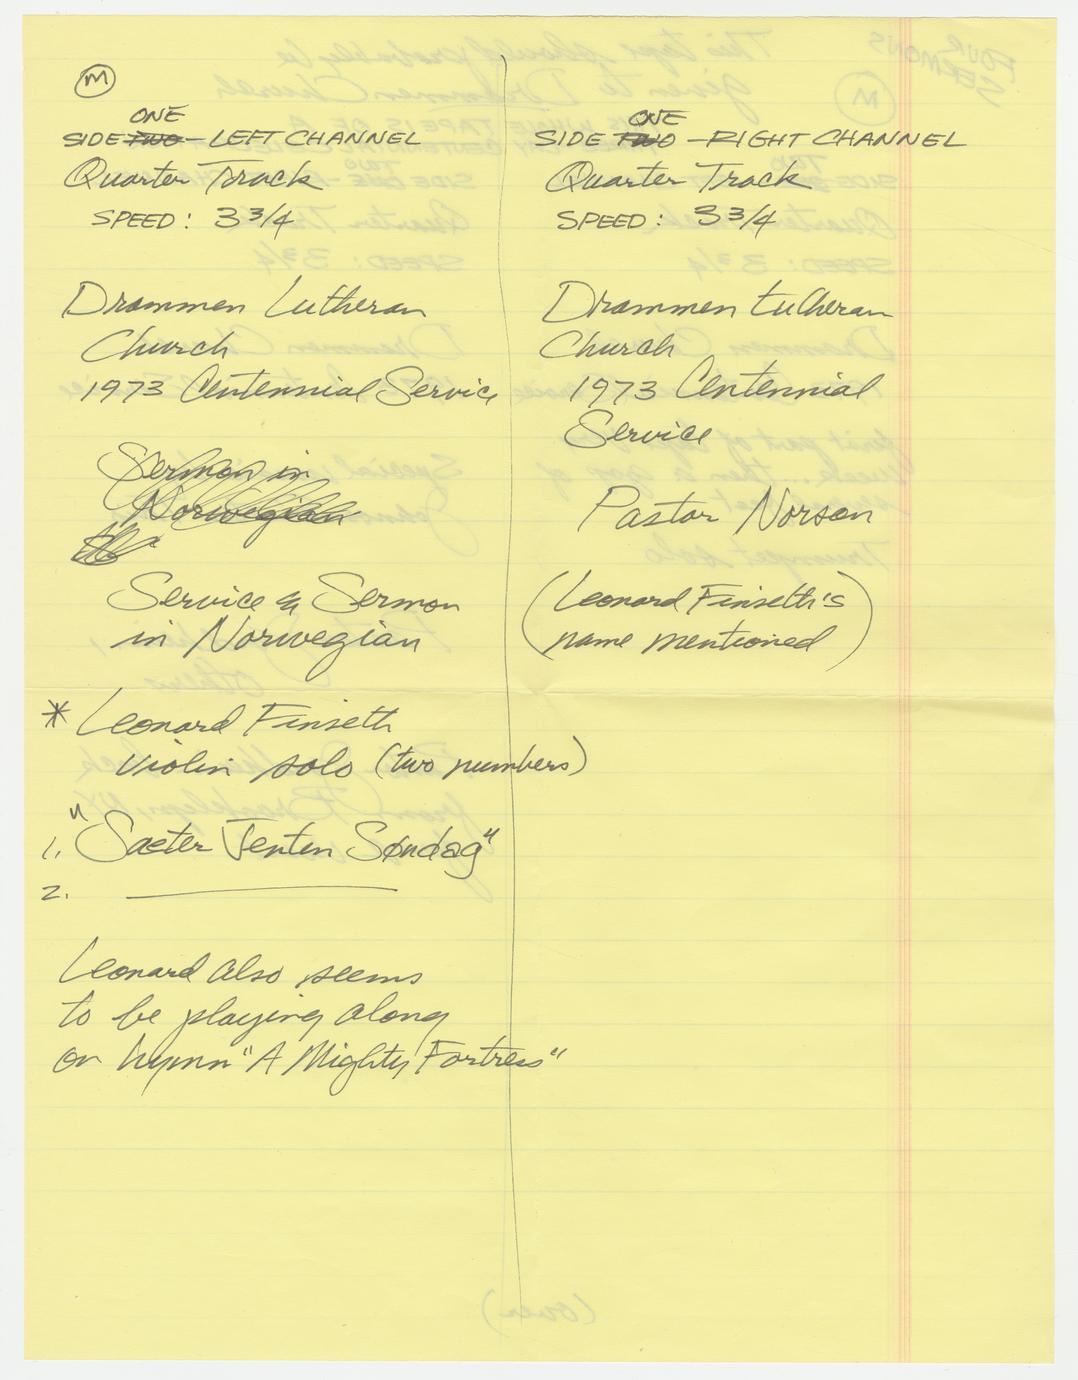 M
ONE
SIDE TWO - LEFT CHANNEL
Quarter Track
SPEED: 3 3/4
Drammen Lutheran
Church
1973 Centennial Service
Sermon in
Norwegian
Service & Sermon
in Norwegian
* Leonard Finseth
violin solo (two numbers)
1. "Saeter Jenten Søndag"
2. ________
Leonard also seems
to be playing along
on hymn "A Mighty Fortress"
ONE
SIDE TWO - RIGHT CHANNEL
Quarter Track
SPEED: 3 3/4
Drammen Lutheran
Church
1973 Centennial
Service
Pastor Norson
(Leonard Finseth's
name mentioned)
(over)